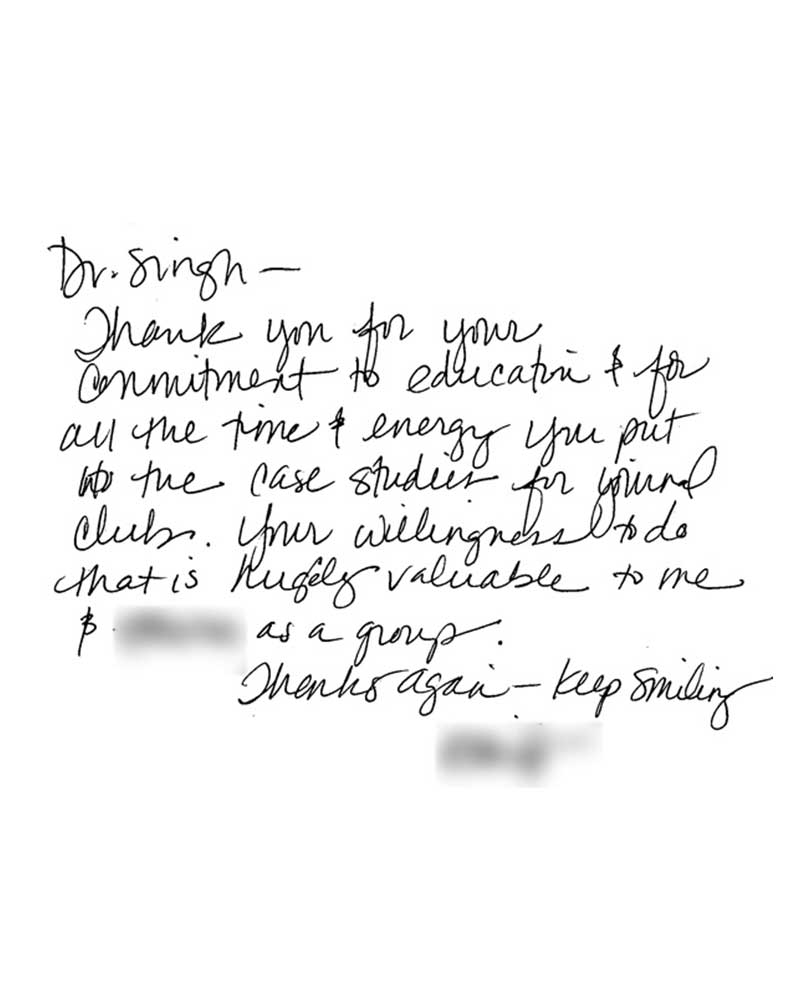 Dr. Singh —
Thank you for your
Commitment to education & for
all the time & energy you put
into the case studies for journal
clubs. Your willingness to do
that is hugely valuable to me
& as a group.
Thanks again — Keep Smiling